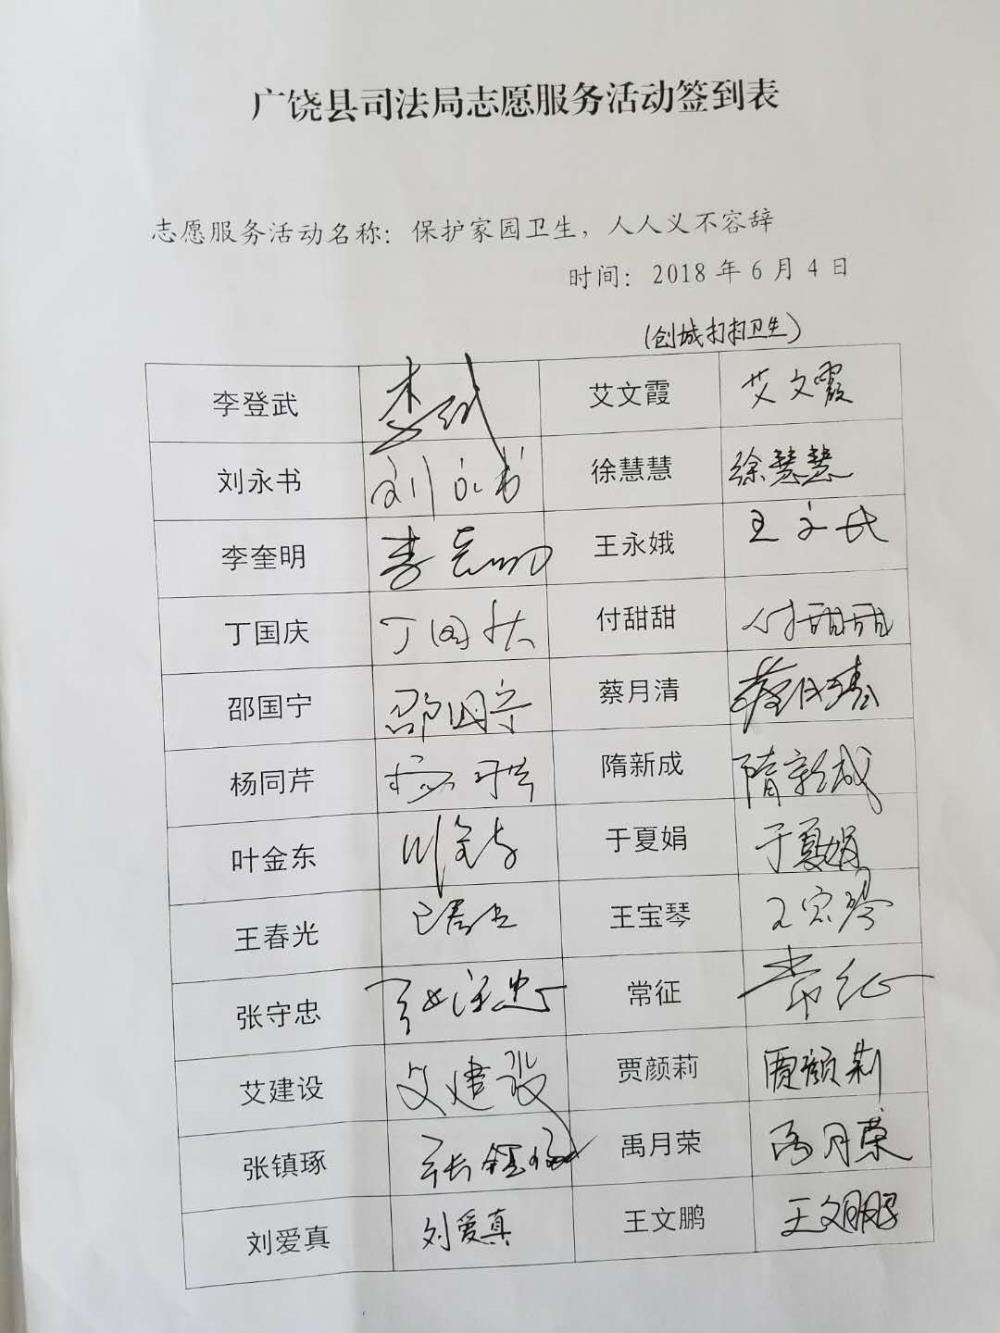 广饶县司法局志愿服务活动签到表
志愿服务活动名称：保护家园卫生，人人义不容辞
时间：2018年6月4日
(创城打扫卫生)
李登武 艾文霞 艾文霞
刘永书 刘永书 徐慧慧 徐慧慧
李奎明 李奎明 王永娥
丁国庆 丁国庆 付甜甜 付甜甜
邵国宁 邵国宁 蔡月清 蔡月清
杨同芹 隋新成 隋新成
叶金东 叶金东 于夏娟 于夏娟
王春光 王宝琴 王宝琴
张守忠 常征 常征
艾建设 艾建设 贾颜莉 贾颜莉
张镇琢 张镇琢 禹月荣 禹月荣
刘爱真 刘爱真 王文鹏 王文鹏